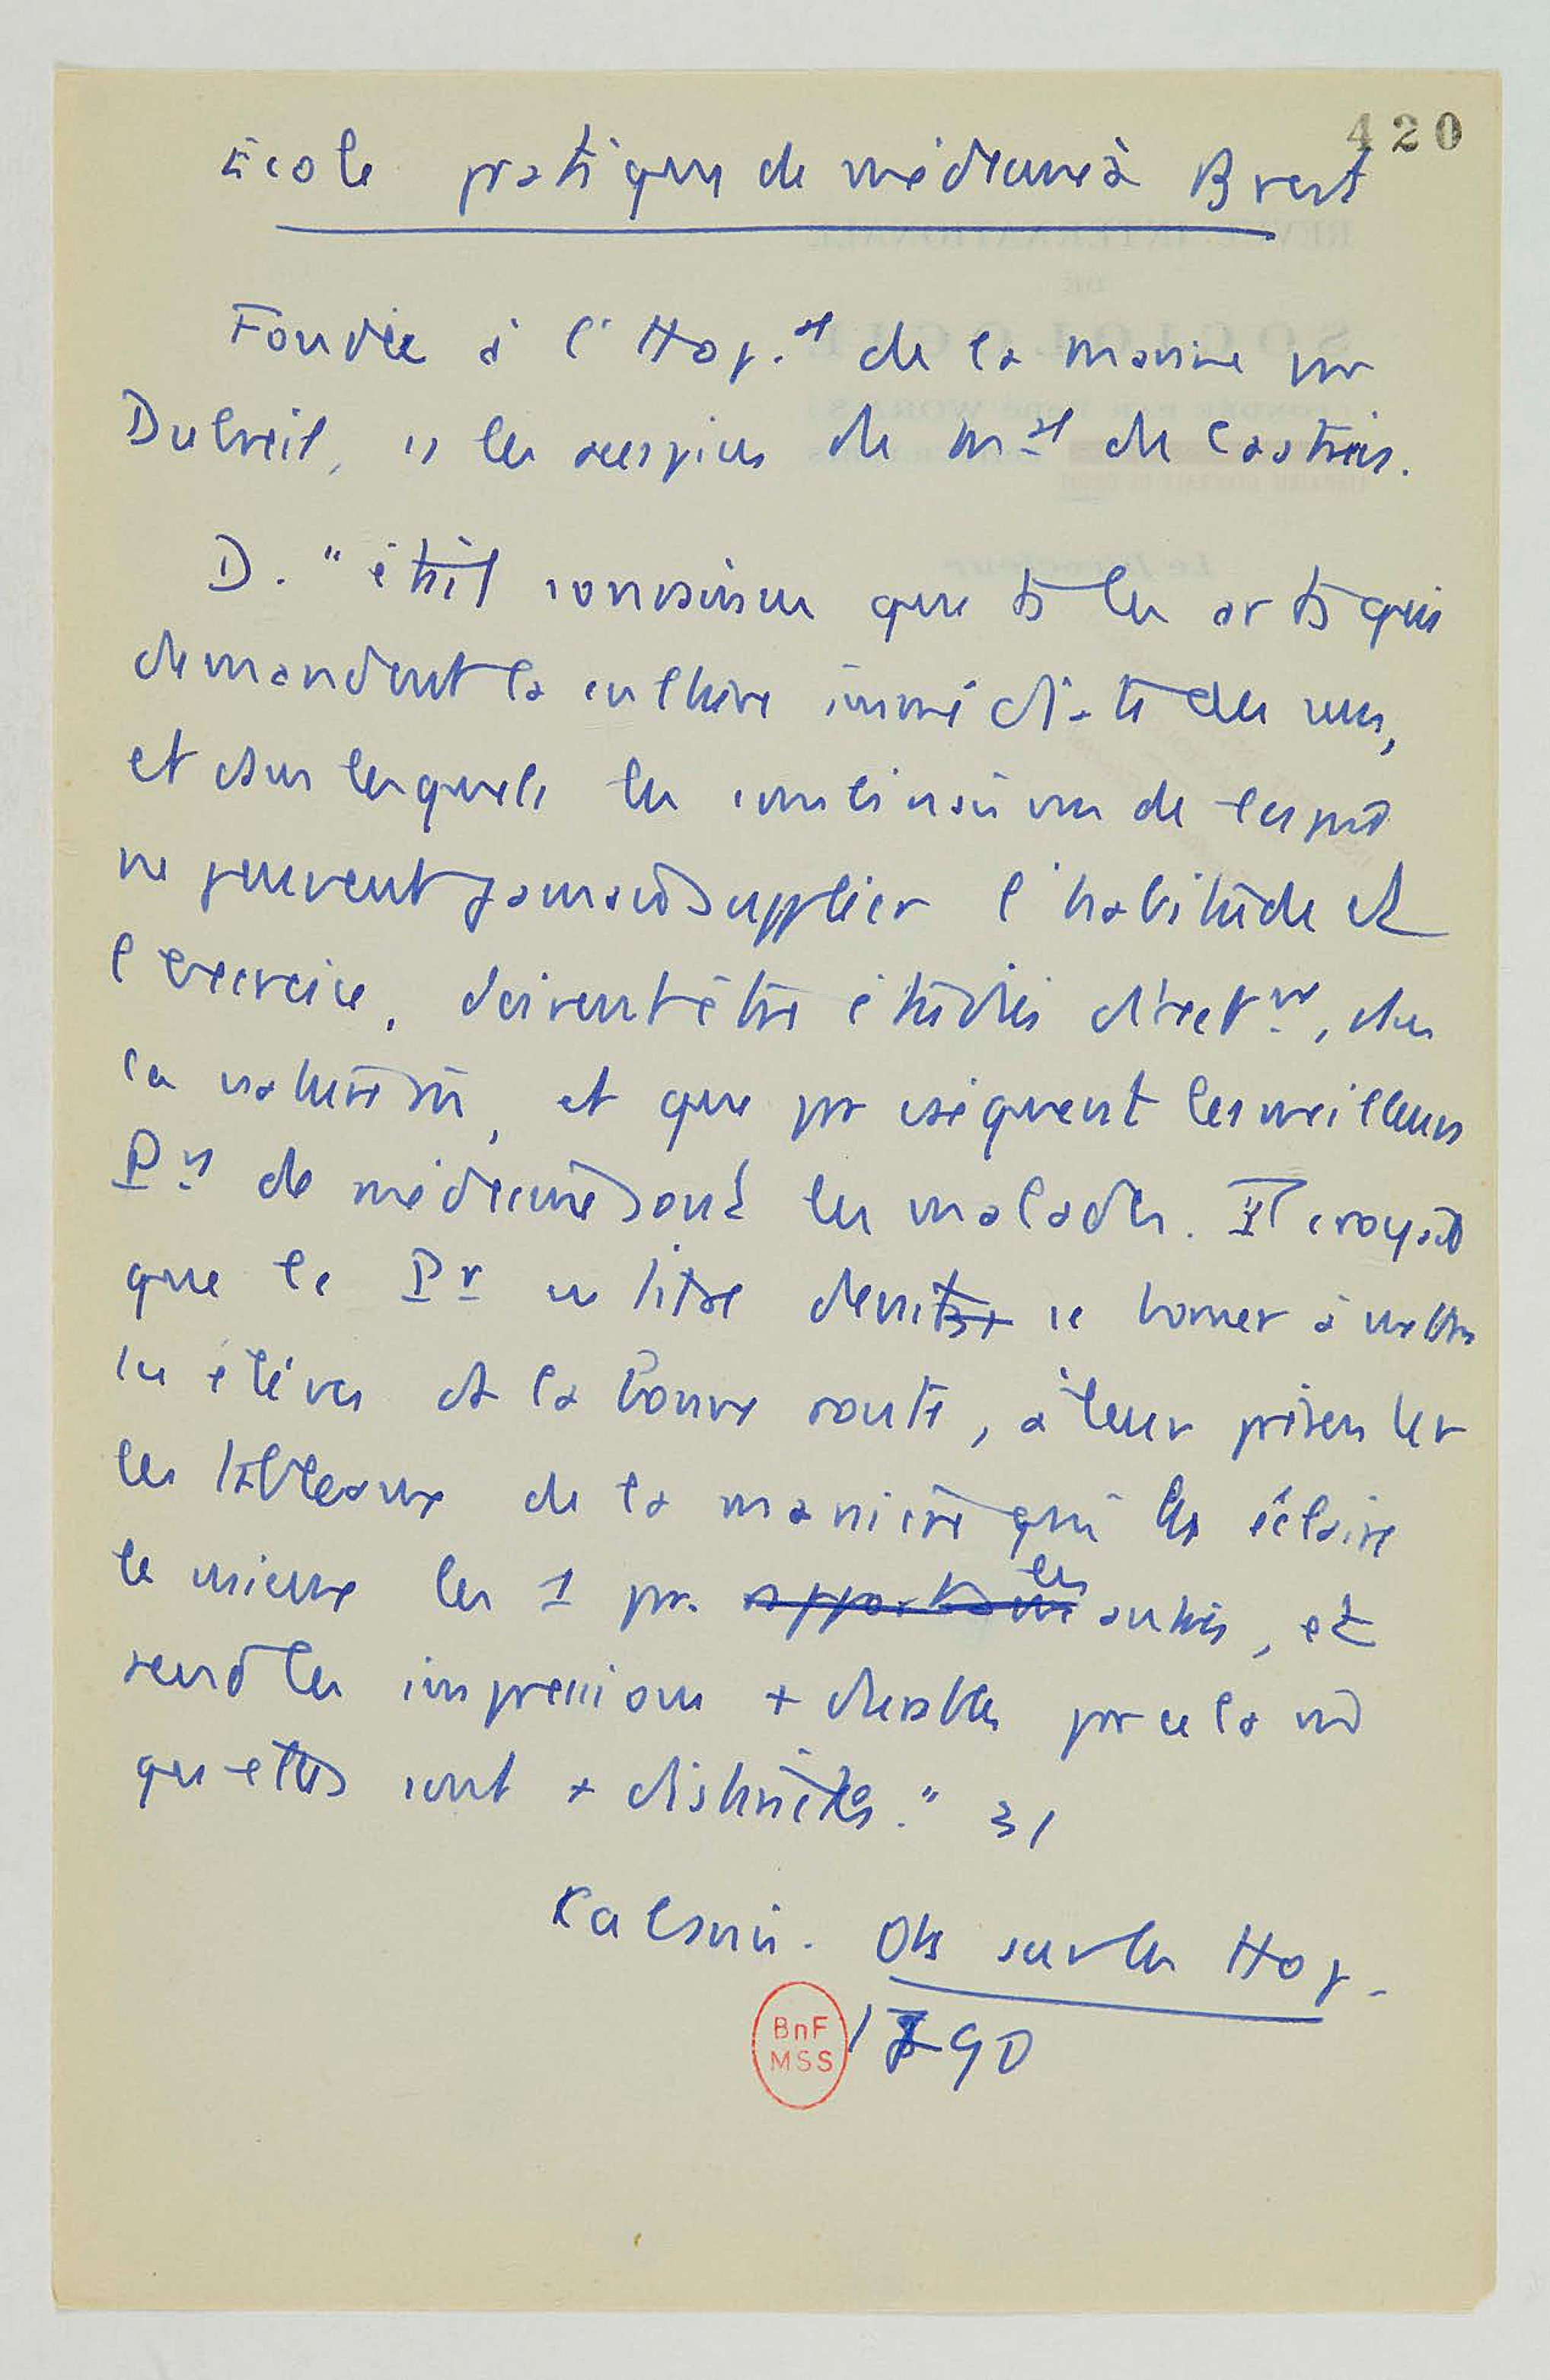 420
École pratique de médecine à Brest
Fondée à l'Hop.al de la marine par
Dubreil, ss les auspices de Mal de Castries.
D. "était convaincu que ts les arts qui
demandent la culture immédiate des sens,
et dans lesquels les combinaisons de l'esprit
ne peuvent jamais suppléer l'habitude et
l'exercice, doivent être étudiés directmt, dans
la nature m, et que par cséquent les meilleurs
Prs de médecine sont les malades. Il croyait
que le Pr en titre devait se borner à mettre
les élèves ds la bonne route, à leur présenter
les tableaux de la manière qui les éclaire
le mieux les 1 par les autres, et
rend les impressions + durables par cela m
qu'elles sont + distinctes." 31
Cabanis. Obs sur les Hop.
1790
BnF
MSS